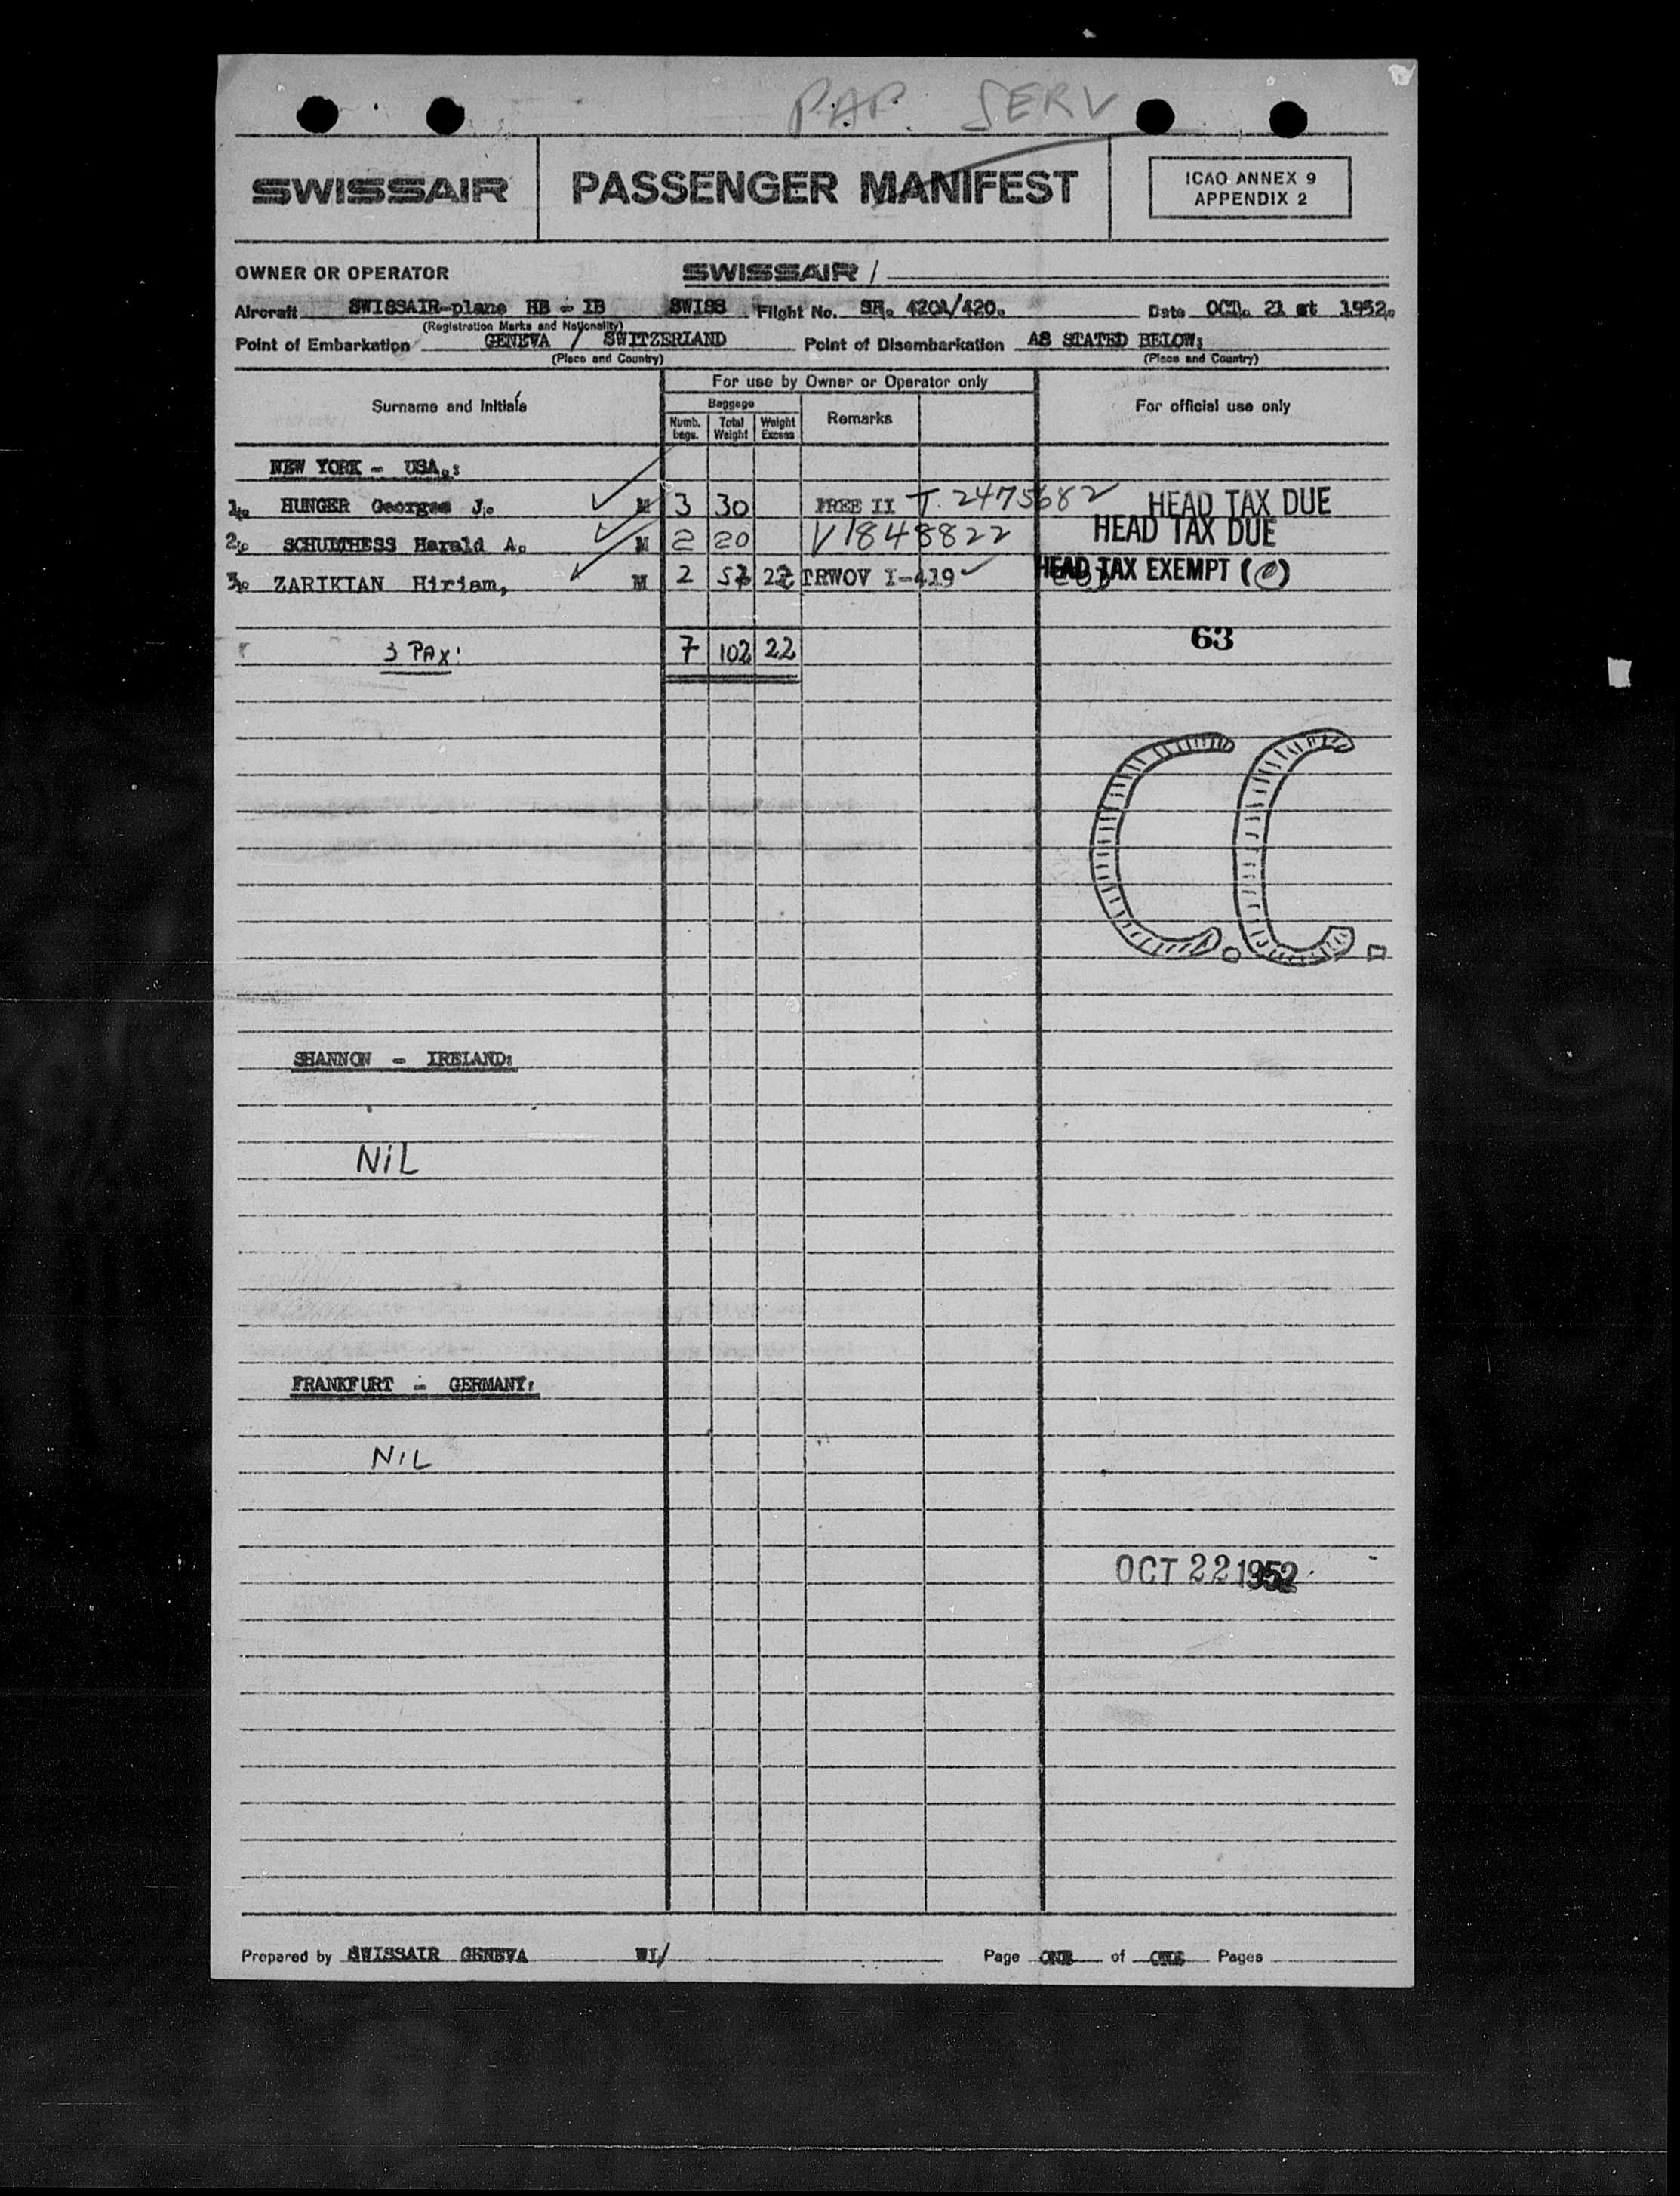 PAP. SERV
SWISSAIR PASSENGER MANIFEST ICAO ANNEX 9
APPENDIX 2
OWNER OR OPERATOR SWISSAIR /
Aircraft SWISSAIR-plane HB - IB SWISS Flight No. SR. 420A/420. Date OCT. 21 st 1952.
(Registration Marks and Nationality)
Point of Embarkation GENEVA / SWITZERLAND Point of Disembarkation AS STATED BELOW:
(Place and Country) (Place and Country)
For use by Owner or Operator only
Surname and Initials Baggage Remarks For official use only
Numb. bags. Total Weight Weight Excess
NEW YORK - USA.:
1. HUNGER Georges J. M 3 30 FREE II T. 2475682 HEAD TAX DUE
2. SCHULTHESS Harald A. M 2 20 V1848822 HEAD TAX DUE
3. ZARIKIAN Hiriam, M 2 52 22 TRWOV I-419 HEAD TAX EXEMPT (C)
3 PAX! 7 102 22 63
C.C.
SHANNON - IRELAND:
NiL
FRANKFURT - GERMANY:
NiL
OCT 22 1952
Prepared by SWISSAIR GENEVA WI/ Page ONE of ONE Pages